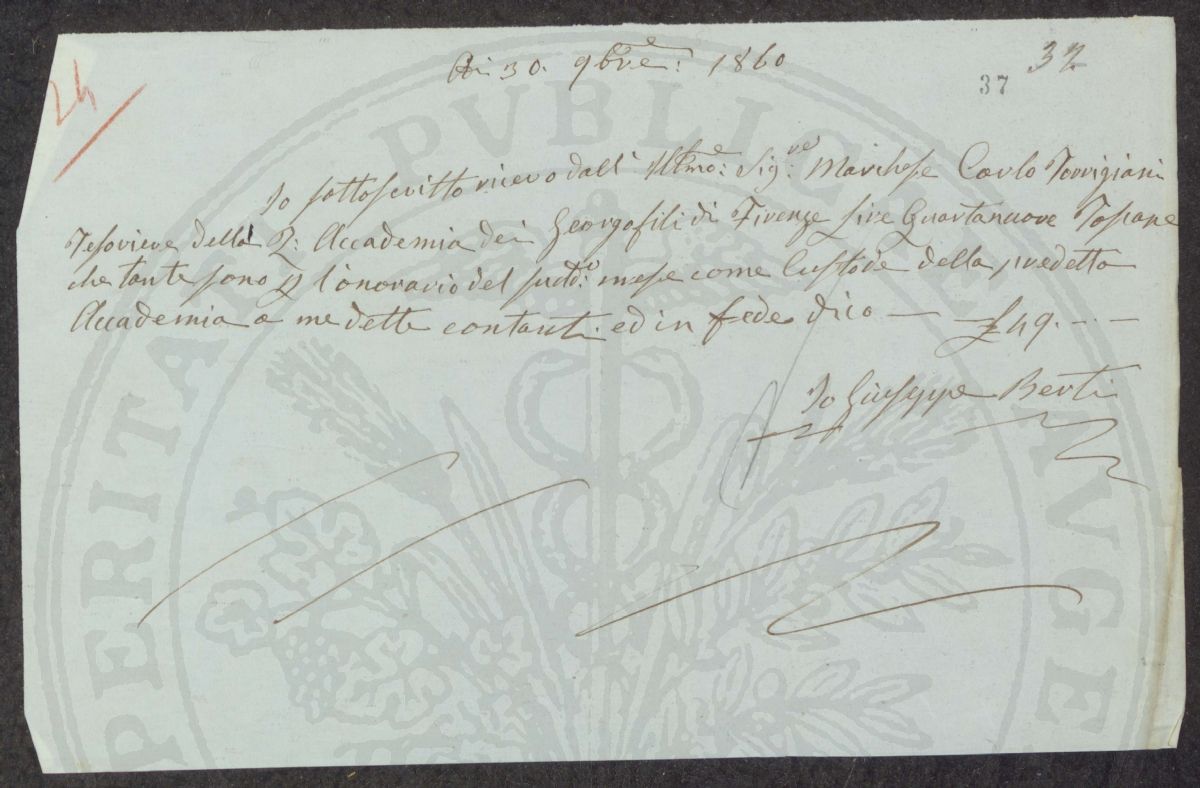 Di 30. 9bre: 1860
37
32
24
Io sottoscritto ricevo dall' Illmo: Sig:re Marchese Carlo Torrigiani
Tesoriere della R: Accademia dei Georgofili di Firenze Lire Quarantanove Toscane
che tante sono p l'onorario del sudto: mese come Custode della predetta
Accademia a me dette contanti. ed in fede dico — £ 49. - - —
Io Giuseppe Berti
PERITATI PVBLICAE AVGE